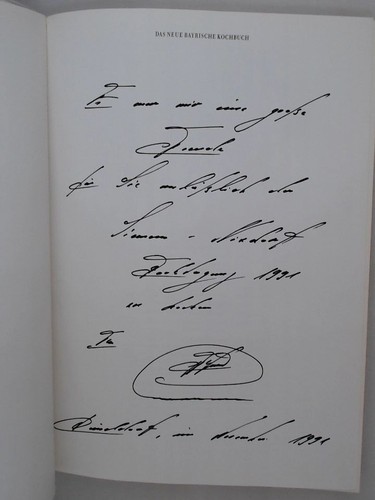 DAS NEUE BAYRISCHE KOCHBUCH
Es war mir eine große
Freude
für Sie anläßlich der
Siemens - Nixdorf
Fachtagung 1991
zu kochen
Ihr
Düsseldorf, im November 1991